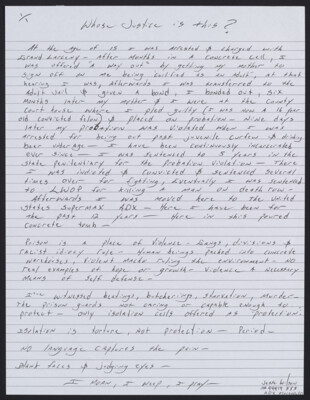 1/1
Whose Justice is this?
At the age of 15 I was arrested & charged with
Grand Larceny - After months in a concrete cell, I
was offered a way out by getting my mother to
sign off on me being certified as an adult, at that
hearing I was, afterwards I was transferred to the
Adult jail & given a bond, I bonded out, six
months later my mother & I were at the County
Court house where I pled guilty (I was now a 16 year
old convicted felon) & placed on probation - Nine days
later my probation was violated when I was
arrested for being out past juvenile curfew & drinking
beer underage - I have been continuously incarcerated
ever since - I was sentenced to 5 years in the
state penitentiary for the probation violation - There
I was indicted & convicted & sentenced several
times over for fighting, eventually I was sentenced
to LWOP for killing a man on death row -
Afterwards I was moved here to the United
States Supermax ADX - Here I have been for
the past 12 years - Here in this poured
concrete tomb -
Prison is a place of violence - Gangs, divisions &
racist ideas rule - Human beings packed into concrete
warehouses, violent minds ruling the environment - No
real examples of hope or growth - Violence a necessary
means of self defense -
I've witnessed beatings, butcherings, starvation, murder -
The prison guards not caring or capable enough to
protect - only isolation cells offered as "protection" -
Isolation is torture, not protection - Period -
No language captures the pain -
Blank faces & judging eyes -
I mourn, I weep, I pray -